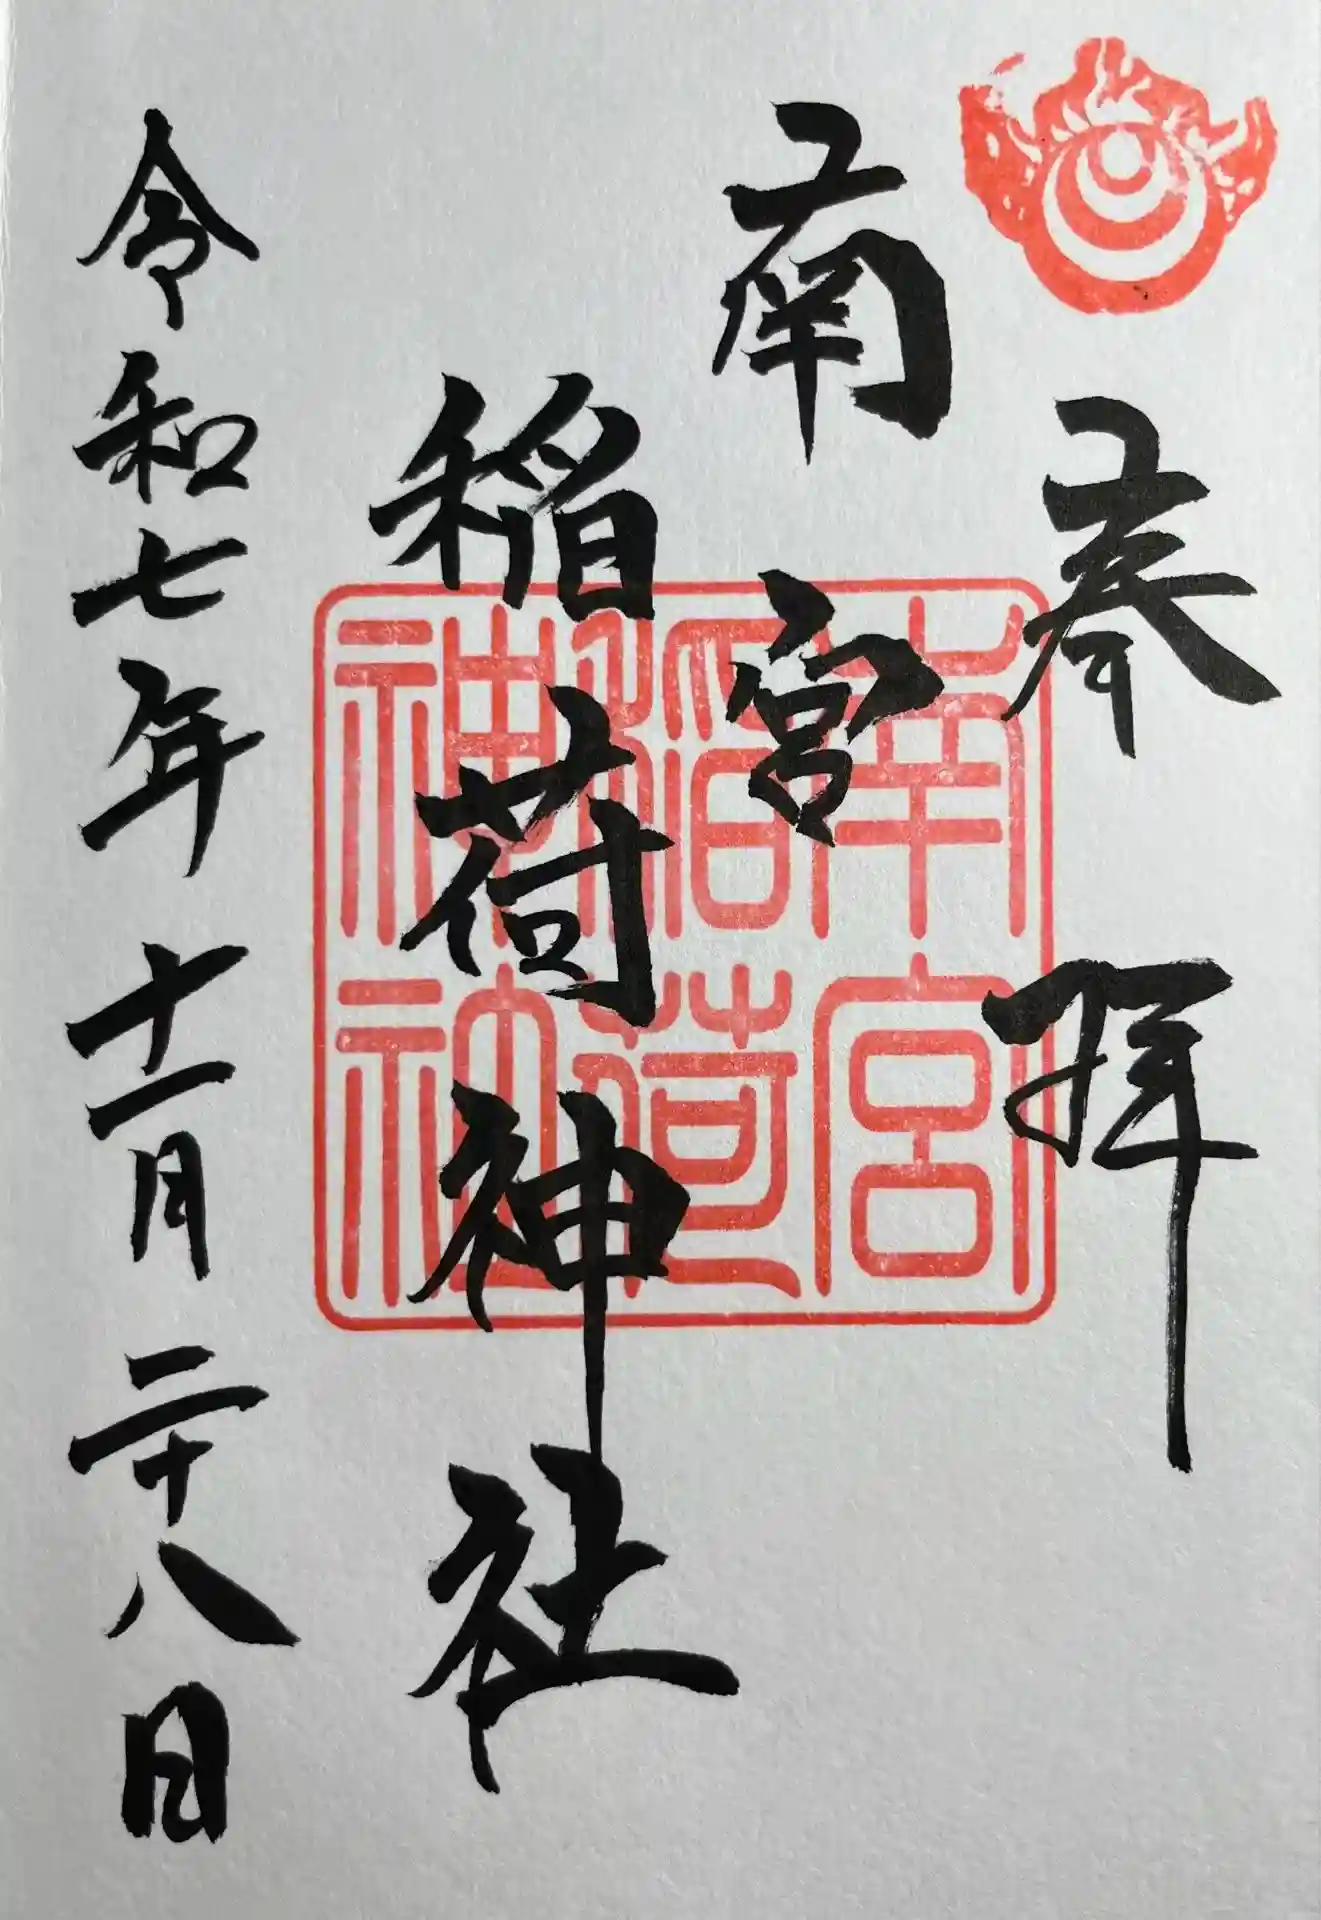 奉拝
南宮
稲荷神社
令和七年十一月二十八日
南宮
稲荷
神社